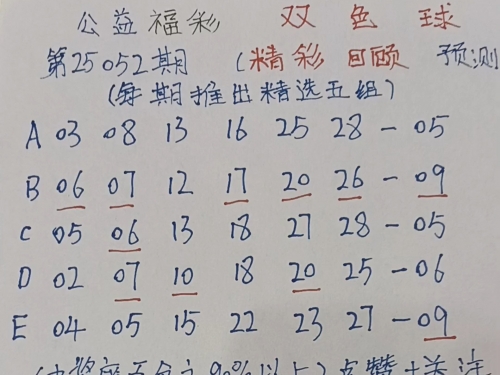 公益福彩 双色球
第25052期 (精彩回顾 预测
(每期推出精选五组)
A 03 08 13 16 25 28 - 05
B 06 07 12 17 20 26 - 09
C 05 06 13 18 27 28 - 05
D 02 07 10 18 20 25 - 06
E 04 05 15 22 23 27 - 09
(中奖率百分之90%以上) 点赞+关注